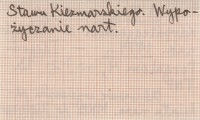 Stawu Kiezmarskiego. Wypo-
życzanie nart.